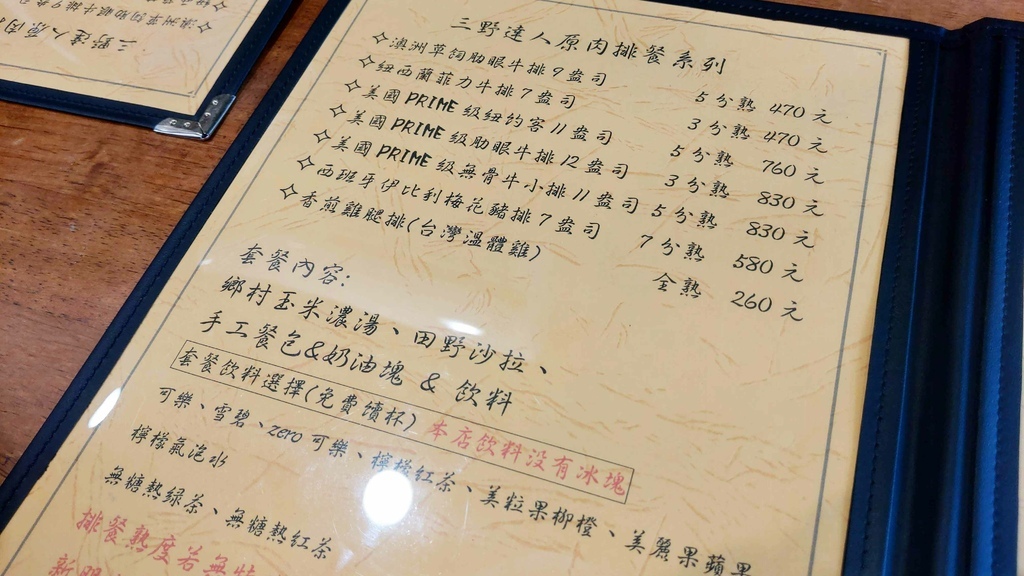 三野達人原肉排餐系列
✧澳洲草飼肋眼牛排9盎司 5分熟 470元
✧紐西蘭菲力牛排7盎司 3分熟 470元
✧美國PRIME級紐約客11盎司 5分熟 760元
✧美國PRIME級肋眼牛排12盎司 3分熟 830元
✧美國PRIME級無骨牛小排11盎司 5分熟 830元
✧西班牙伊比利梅花豬排7盎司 7分熟 580元
✧香煎雞腿排(台灣溫體雞) 全熟 260元
套餐內容:
鄉村玉米濃湯、田野沙拉、
手工餐包&奶油塊 & 飲料
套餐飲料選擇(免費續杯) 本店飲料沒有冰塊
可樂、雪碧、zero可樂、檸檬紅茶、美粒果柳橙、美麗果蘋果
檸檬氣泡水
無糖熱綠茶、無糖熱紅茶
排餐熟度若無特